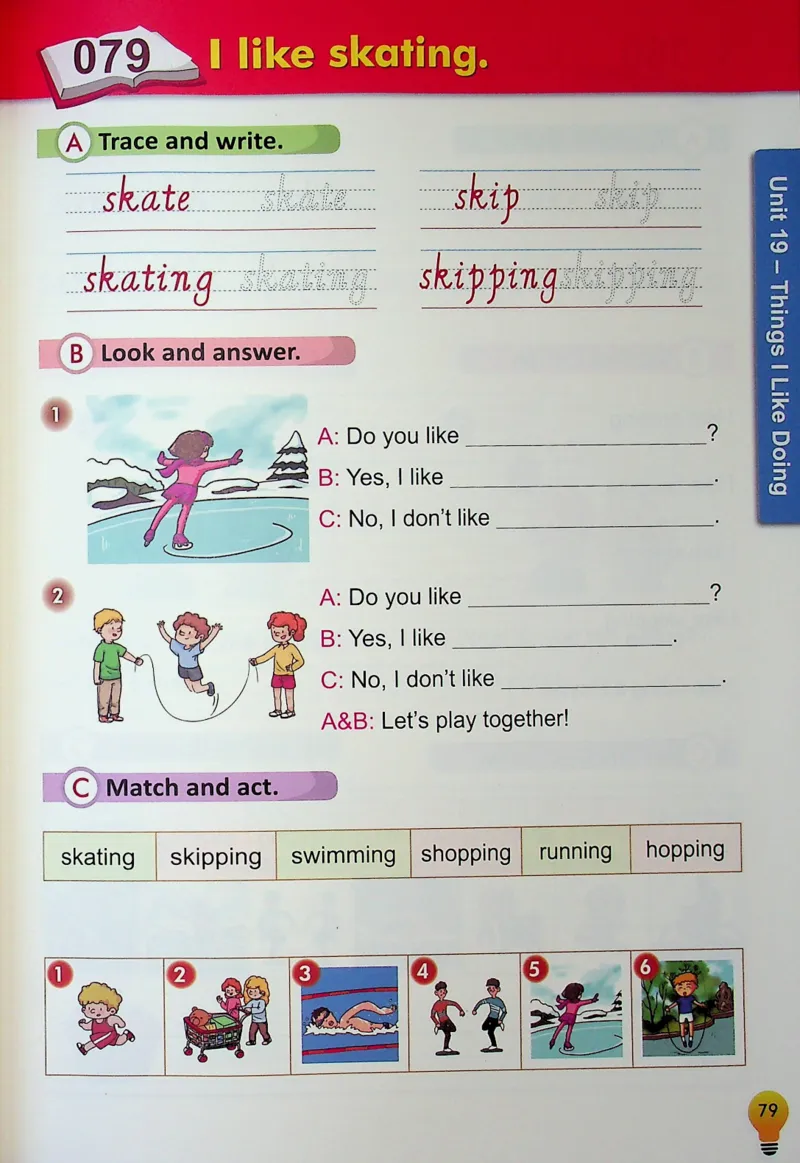 079 I like skating.
A Trace and write.
skate skate skip skip
skating skating skipping skipping
B Look and answer.
1
A: Do you like ____________________?
B: Yes, I like ______________________.
C: No, I don't like __________________.
2
A: Do you like ____________________?
B: Yes, I like __________________.
C: No, I don't like __________________.
A&B: Let's play together!
C Match and act.
skating skipping swimming shopping running hopping
1 2 3 4 5 6
Unit 19 – Things I Like Doing
79